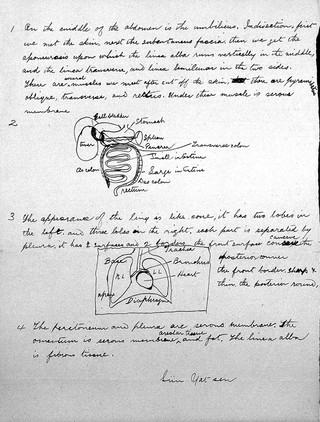 1 On the middle of the abdomen is the umbilicus. In disection, first
we met the skin, next the subcutaneous fascia then we get the
aponurosis upon which the linea alba runs vertically in the middle,
and the linea transverse, and linea semilunar in the two sides.
There are several muscles we meet after cut off the skin; these are pyramid
oblique, transverse, and recties. Under these muscle is serous
membrane
2
Gall bladder
Stomach
liver
Spleen
Pancreas
Transverse colon
Small intestine
As colon
Large intestine
Des colon
rectum
3 The appearance of the lung is like cone, it has two lobes in
the left, and three lobes in the right, each part is separated by
pleura, it has 2 surfaces and 2 borders, the front surface convex the
posterior inner
the front border sharp &
thin the posterior
Trachea
Base
Bronchus
R L
L L
Heart
apex
Diaphragm
4 The peretoneum and pleura are serous membrane. The
omentum is serous membrane, areolar tissue and fat, The linea alba
is fibrous tissue.
Sün Yat sen